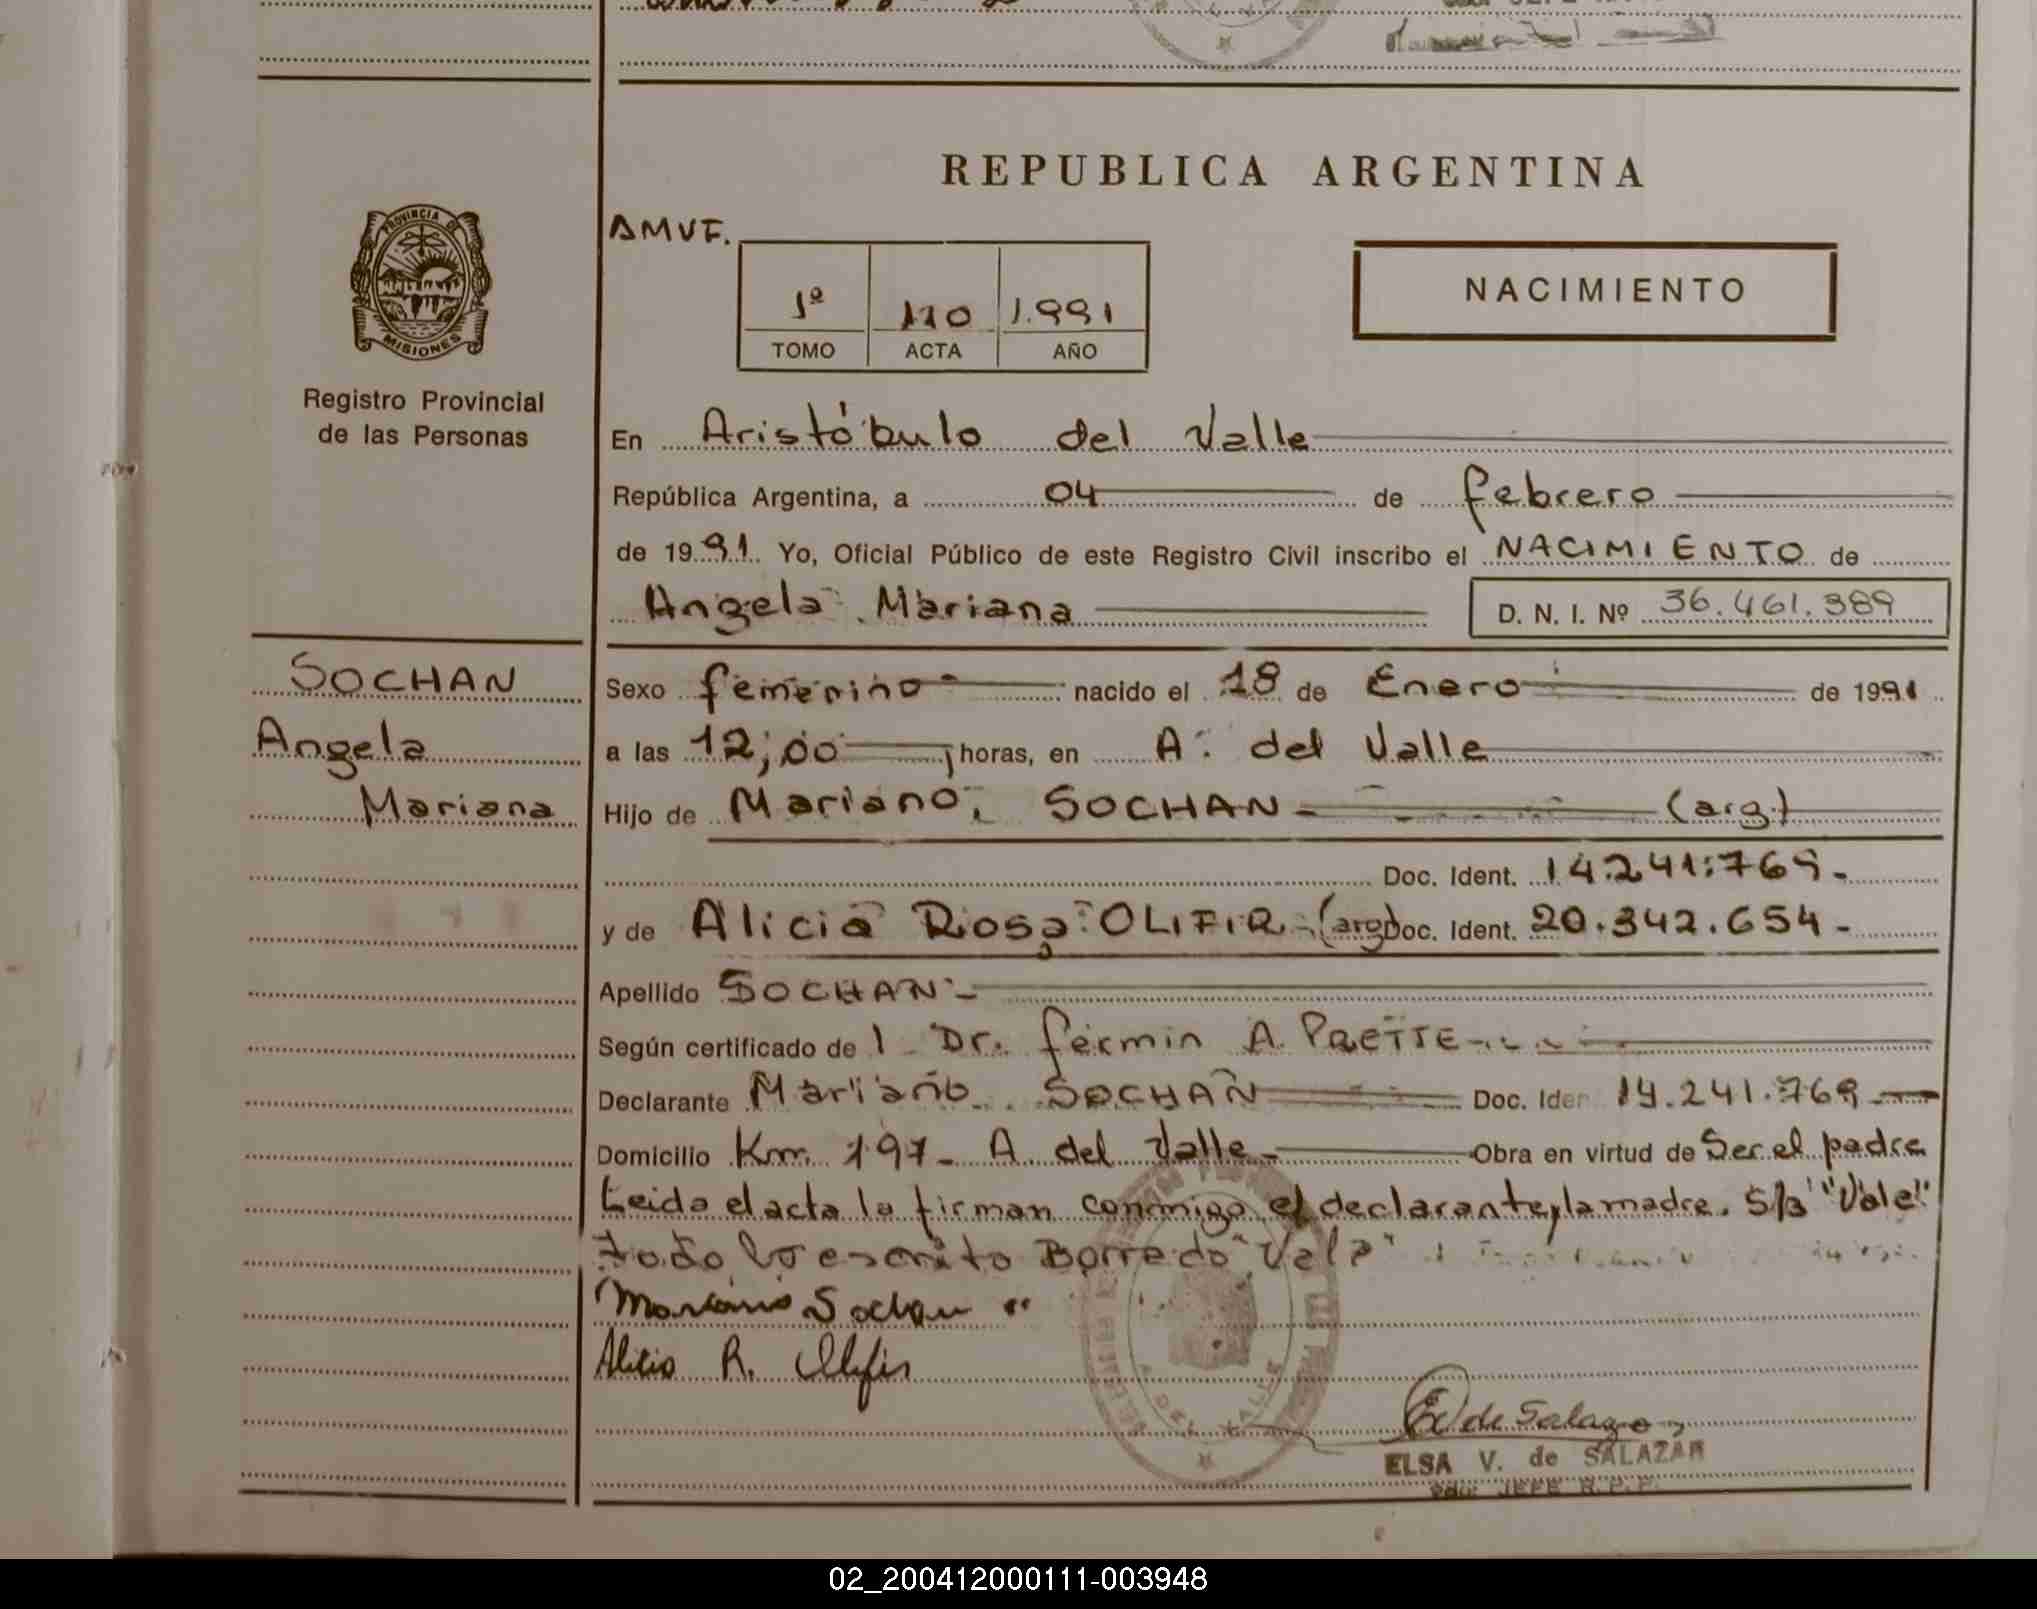 REPUBLICA ARGENTINA
PROVINCIA DE
MISIONES
Registro Provincial
de las Personas
AMVF.
1º 110 1.991
TOMO ACTA AÑO
NACIMIENTO
En Aristóbulo del Valle
República Argentina, a 04 de febrero
de 1991 Yo, Oficial Público de este Registro Civil inscribo el NACIMIENTO de
Angela Mariana D. N. I. Nº 36.461.389
SOCHAN
Angela
Mariana
Sexo femenino nacido el 18 de Enero de 1991
a las 12,00 horas, en A. del Valle
Hijo de Mariano, SOCHAN (arg)
Doc. Ident. 14.241.769-
y de Alicia Rosa OLIFIR (arg) Doc. Ident. 20.342.654-
Apellido SOCHAN-
Según certificado de Dr. fermin A. PRETTE
Declarante Mariano SOCHAN Doc. Iden 14.241.769
Domicilio Km. 197- A del Valle- Obra en virtud de Ser el padre
Leida el acta la firman conmigo el declarante y la madre. S/B "Vale"
todo lo escrito Borrado "Vale"
Mariano Sochan
Alicia R. Olifir
A. DEL VALLE
E V de Salazar
ELSA V. de SALAZAR
JEFE R.P.P.
02_200412000111-003948